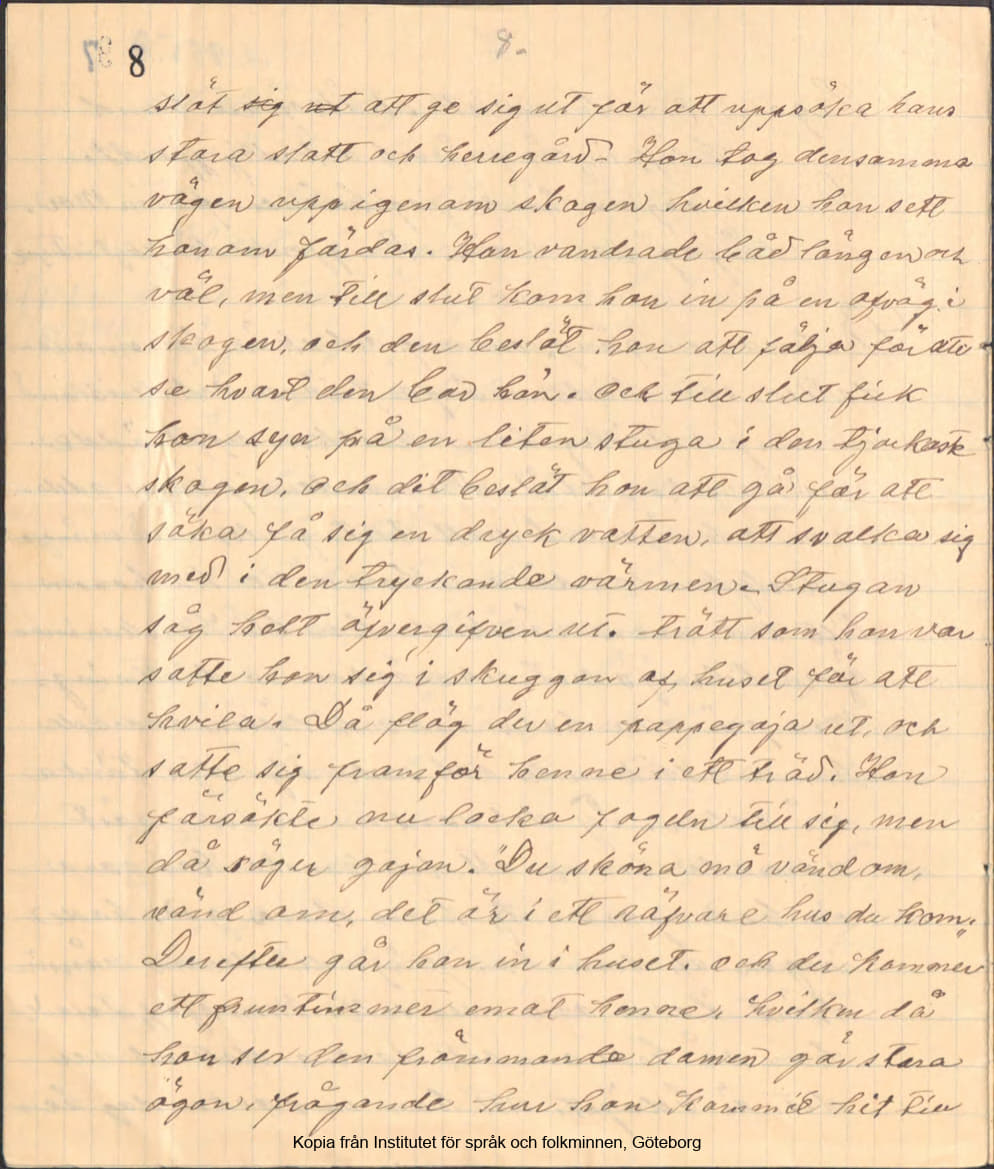 37 8 8.
slöt sig ut att ge sig ut för att uppsöka hans
stora slott och herregård - Hon tog densamma
vägen upp igenom skogen hvilken hon sett
honom färdas. Hon vandrade båd lången och
väl, men till slut kom hon in på en afväg i
skogen, och den beslöt hon att följa för att
se hvart den bar hän. Och till slut fick
hon syn på en liten stuga i den tjockaste
skogen. Och dit beslöt hon att gå för att
söka få sig en dryck vatten, att svalka sig
med i den tryckande värmen. Stugan
såg helt öfvergifven ut. trött som hon var
satte hon sig i skuggan af huset för att
hvila. Då flög der en pappegoja ut, och
satte sig framför henne i ett träd. Hon
försökte nu locka fogeln till sig, men
då säger gojan. "Du sköna mö vänd om,
vänd om, det är i ett röfvare hus du kom."
Derefter går hon in i huset. och der kommer
ett fruntimmer emot henne, hvilken då
hon ser den främmande damen gör stora
ögon, frågande hur hon kommit hit till
Kopia från Institutet för språk och folkminnen, Göteborg